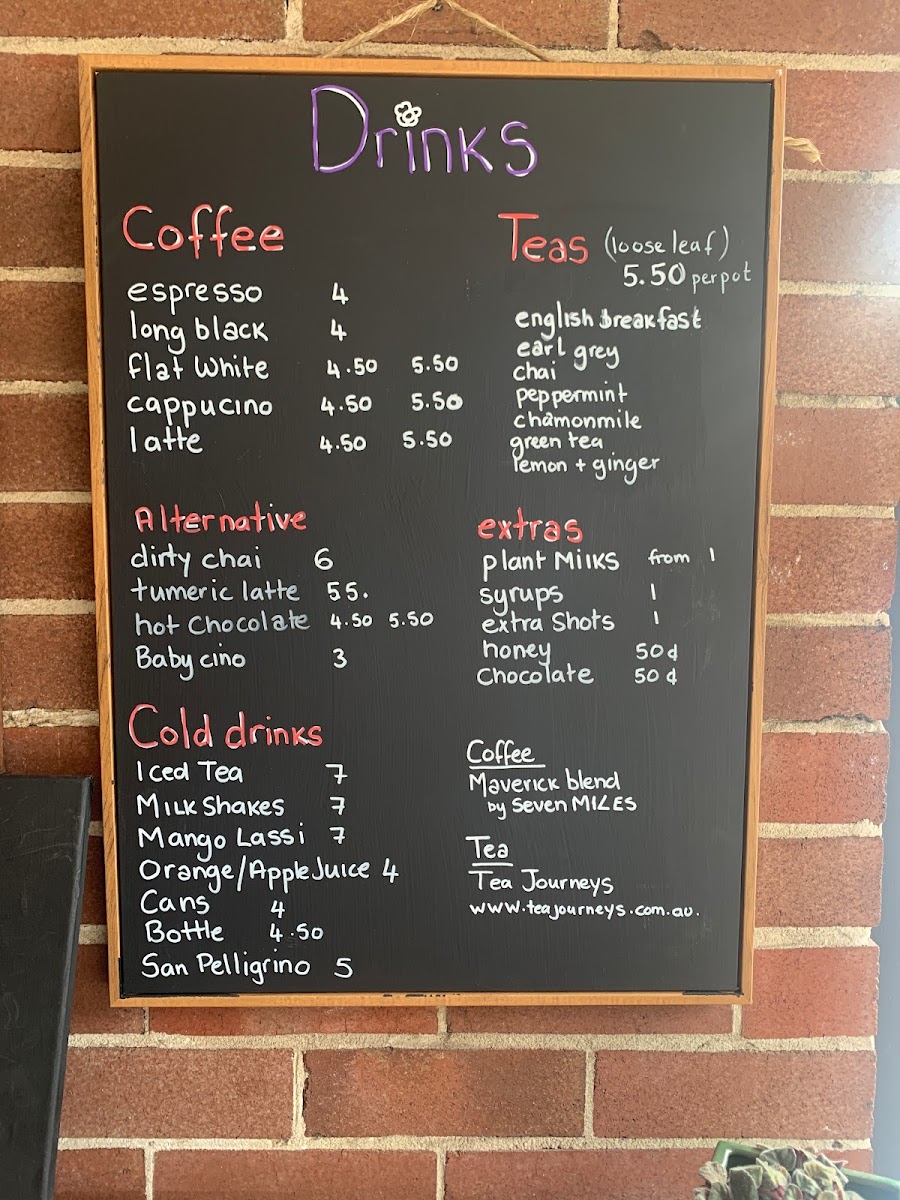 Drinks
Coffee
espresso 4
long black 4
flat white 4.50 5.50
cappucino 4.50 5.50
latte 4.50 5.50
Teas (loose leaf)
5.50 per pot
english breakfast
earl grey
chai
peppermint
chamonmile
green tea
lemon + ginger
Alternative
dirty chai 6
tumeric latte 55.
hot Chocolate 4.50 5.50
Baby cino 3
extras
plant Milks from 1
syrups 1
extra Shots 1
honey 50¢
Chocolate 50¢
Cold drinks
Iced Tea 7
Milk Shakes 7
Mango Lassi 7
Orange/Apple Juice 4
Cans 4
Bottle 4.50
San Pelligrino 5
Coffee
Maverick blend
by Seven MILES
Tea
Tea Journeys
www.teajourneys.com.au.